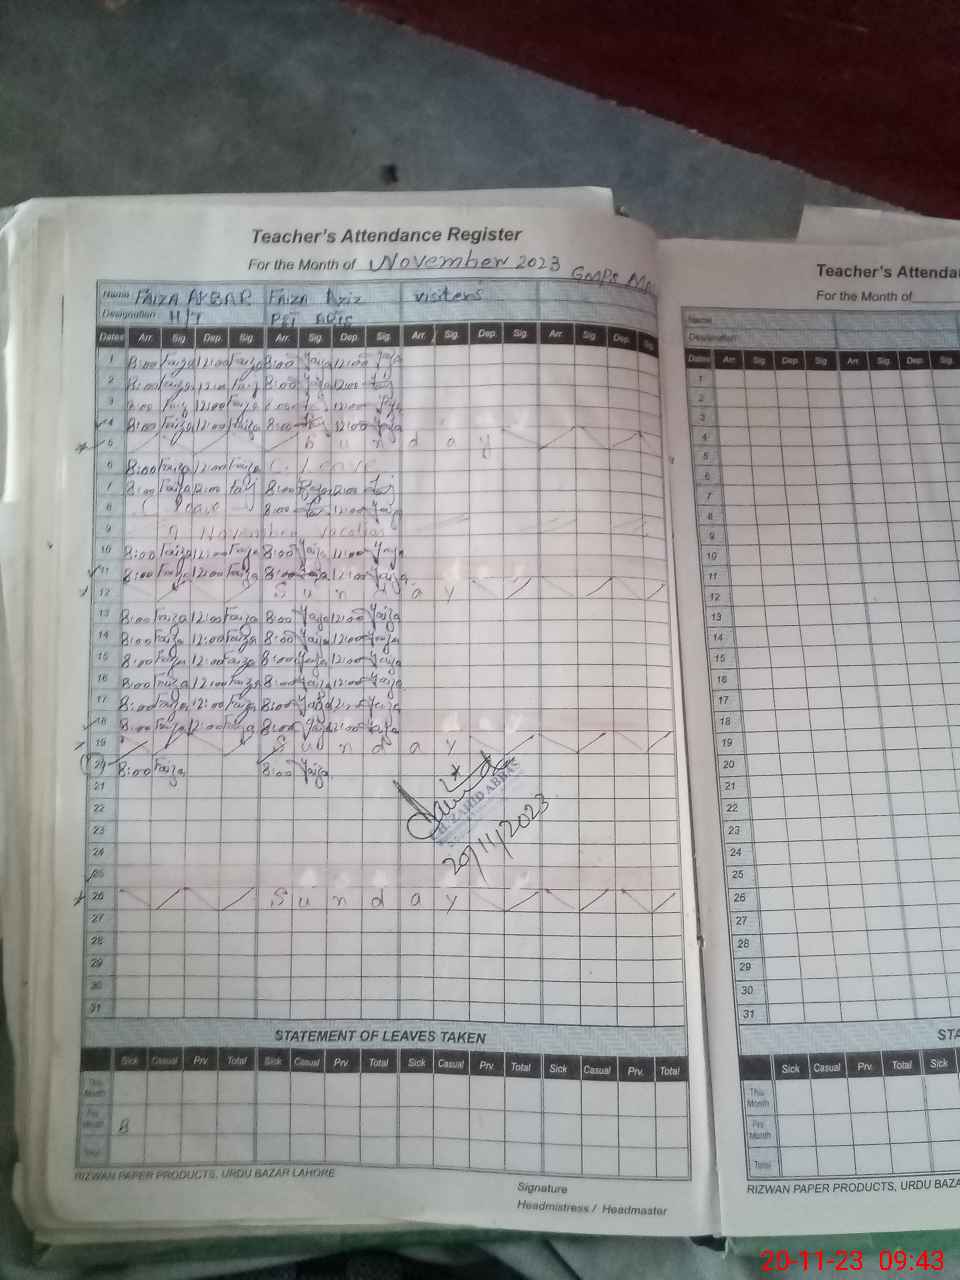 Teacher's Attendance Register
For the Month of November 2023 GMPS
Teacher's Attenda
For the Month of
Name FAIZA AKBAR Faiza Aziz visiters
Designation H/T PST
Name
Designation
Dates Arr. Sig. Dep. Sig. Arr. Sig. Dep. Sig. Arr. Sig. Dep. Sig. Arr. Sig. Dep. Sig.
Dates Arr. Sig. Dep. Sig. Arr. Sig. Dep. Sig.
1 8:00 Faiza 12:00 Faiza 8:00 Faiza 12:00 Faiza
2 8:00 Faiza 12:00 Faiza 8:00 Faiza 12:00
3 8:00 Faiza 12:00 Faiza 8:00 12:00 Faiza
4 8:00 Faiza 12:00 Faiza 8:00 12:00 Faiza
5 Sunday
6 8:00 Faiza 12:00 Faiza C. Leave
7 8:00 Faiza 12:00 8:00 Faiza 12:00
8 C Leave 8:00 12:00 Faiza
9 9 November vacation
10 8:00 Faiza 12:00 Faiza 8:00 Faiza 12:00 Faiza
11 8:00 Faiza 12:00 Faiza 8:00 Faiza 12:00 Faiza
12 Sunday
13 8:00 Faiza 12:00 Faiza 8:00 Faiza 12:00 Faiza
14 8:00 Faiza 12:00 Faiza 8:00 Faiza 12:00 Faiza
15 8:00 Faiza 12:00 Faiza 8:00 Faiza 12:00 Faiza
16 8:00 Faiza 12:00 Faiza 8:00 Faiza 12:00 Faiza
17 8:00 Faiza 12:00 Faiza 8:00 Faiza 12:00 Faiza
18 8:00 Faiza 12:00 Faiza 8:00 Faiza 12:00 Faiza
19 Sunday
20 8:00 Faiza 8:00 Faiza
21
22
ZAHID ABBAS
20/11/2023
23
24
25
26 Sunday
27
28
29
30
31
1
2
3
4
5
6
7
8
9
10
11
12
13
14
15
16
17
18
19
20
21
22
23
24
25
26
27
28
29
30
31
STATEMENT OF LEAVES TAKEN
STA
Sick Casual Prv. Total Sick Casual Prv. Total Sick Casual Prv. Total Sick Casual Prv. Total
Sick Casual Prv. Total Sick
This Month
Prv Month 8
Total
This Month
Prv. Month
Total
RIZWAN PAPER PRODUCTS, URDU BAZAR LAHORE
Signature
Headmistress / Headmaster
RIZWAN PAPER PRODUCTS, URDU BAZA
20-11-23 09:43